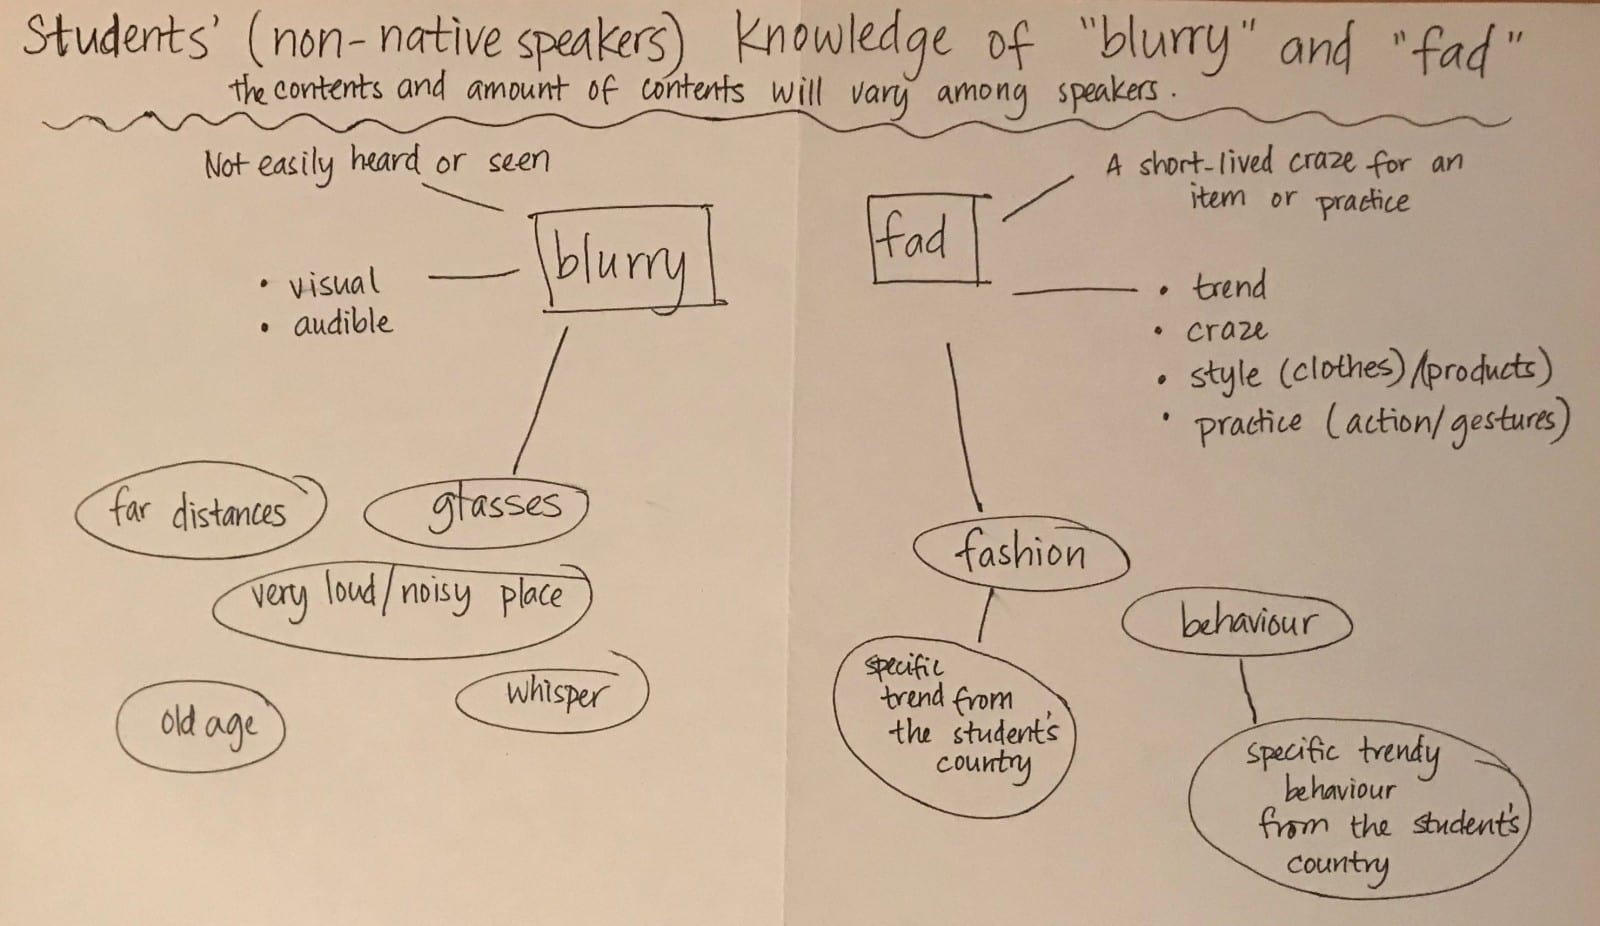 Students' (non-native speakers) Knowledge of "blurry" and "fad"
the contents and amount of contents will vary among speakers.
Not easily heard or seen
blurry
• visual
• audible
far distances
glasses
very loud/noisy place
whisper
old age
A short-lived craze for an
item or practice
fad
• trend
• craze
• style (clothes)/(products)
• practice (action/gestures)
fashion
behaviour
specific
trend from
the student's
country
specific trendy
behaviour
from the student's
country